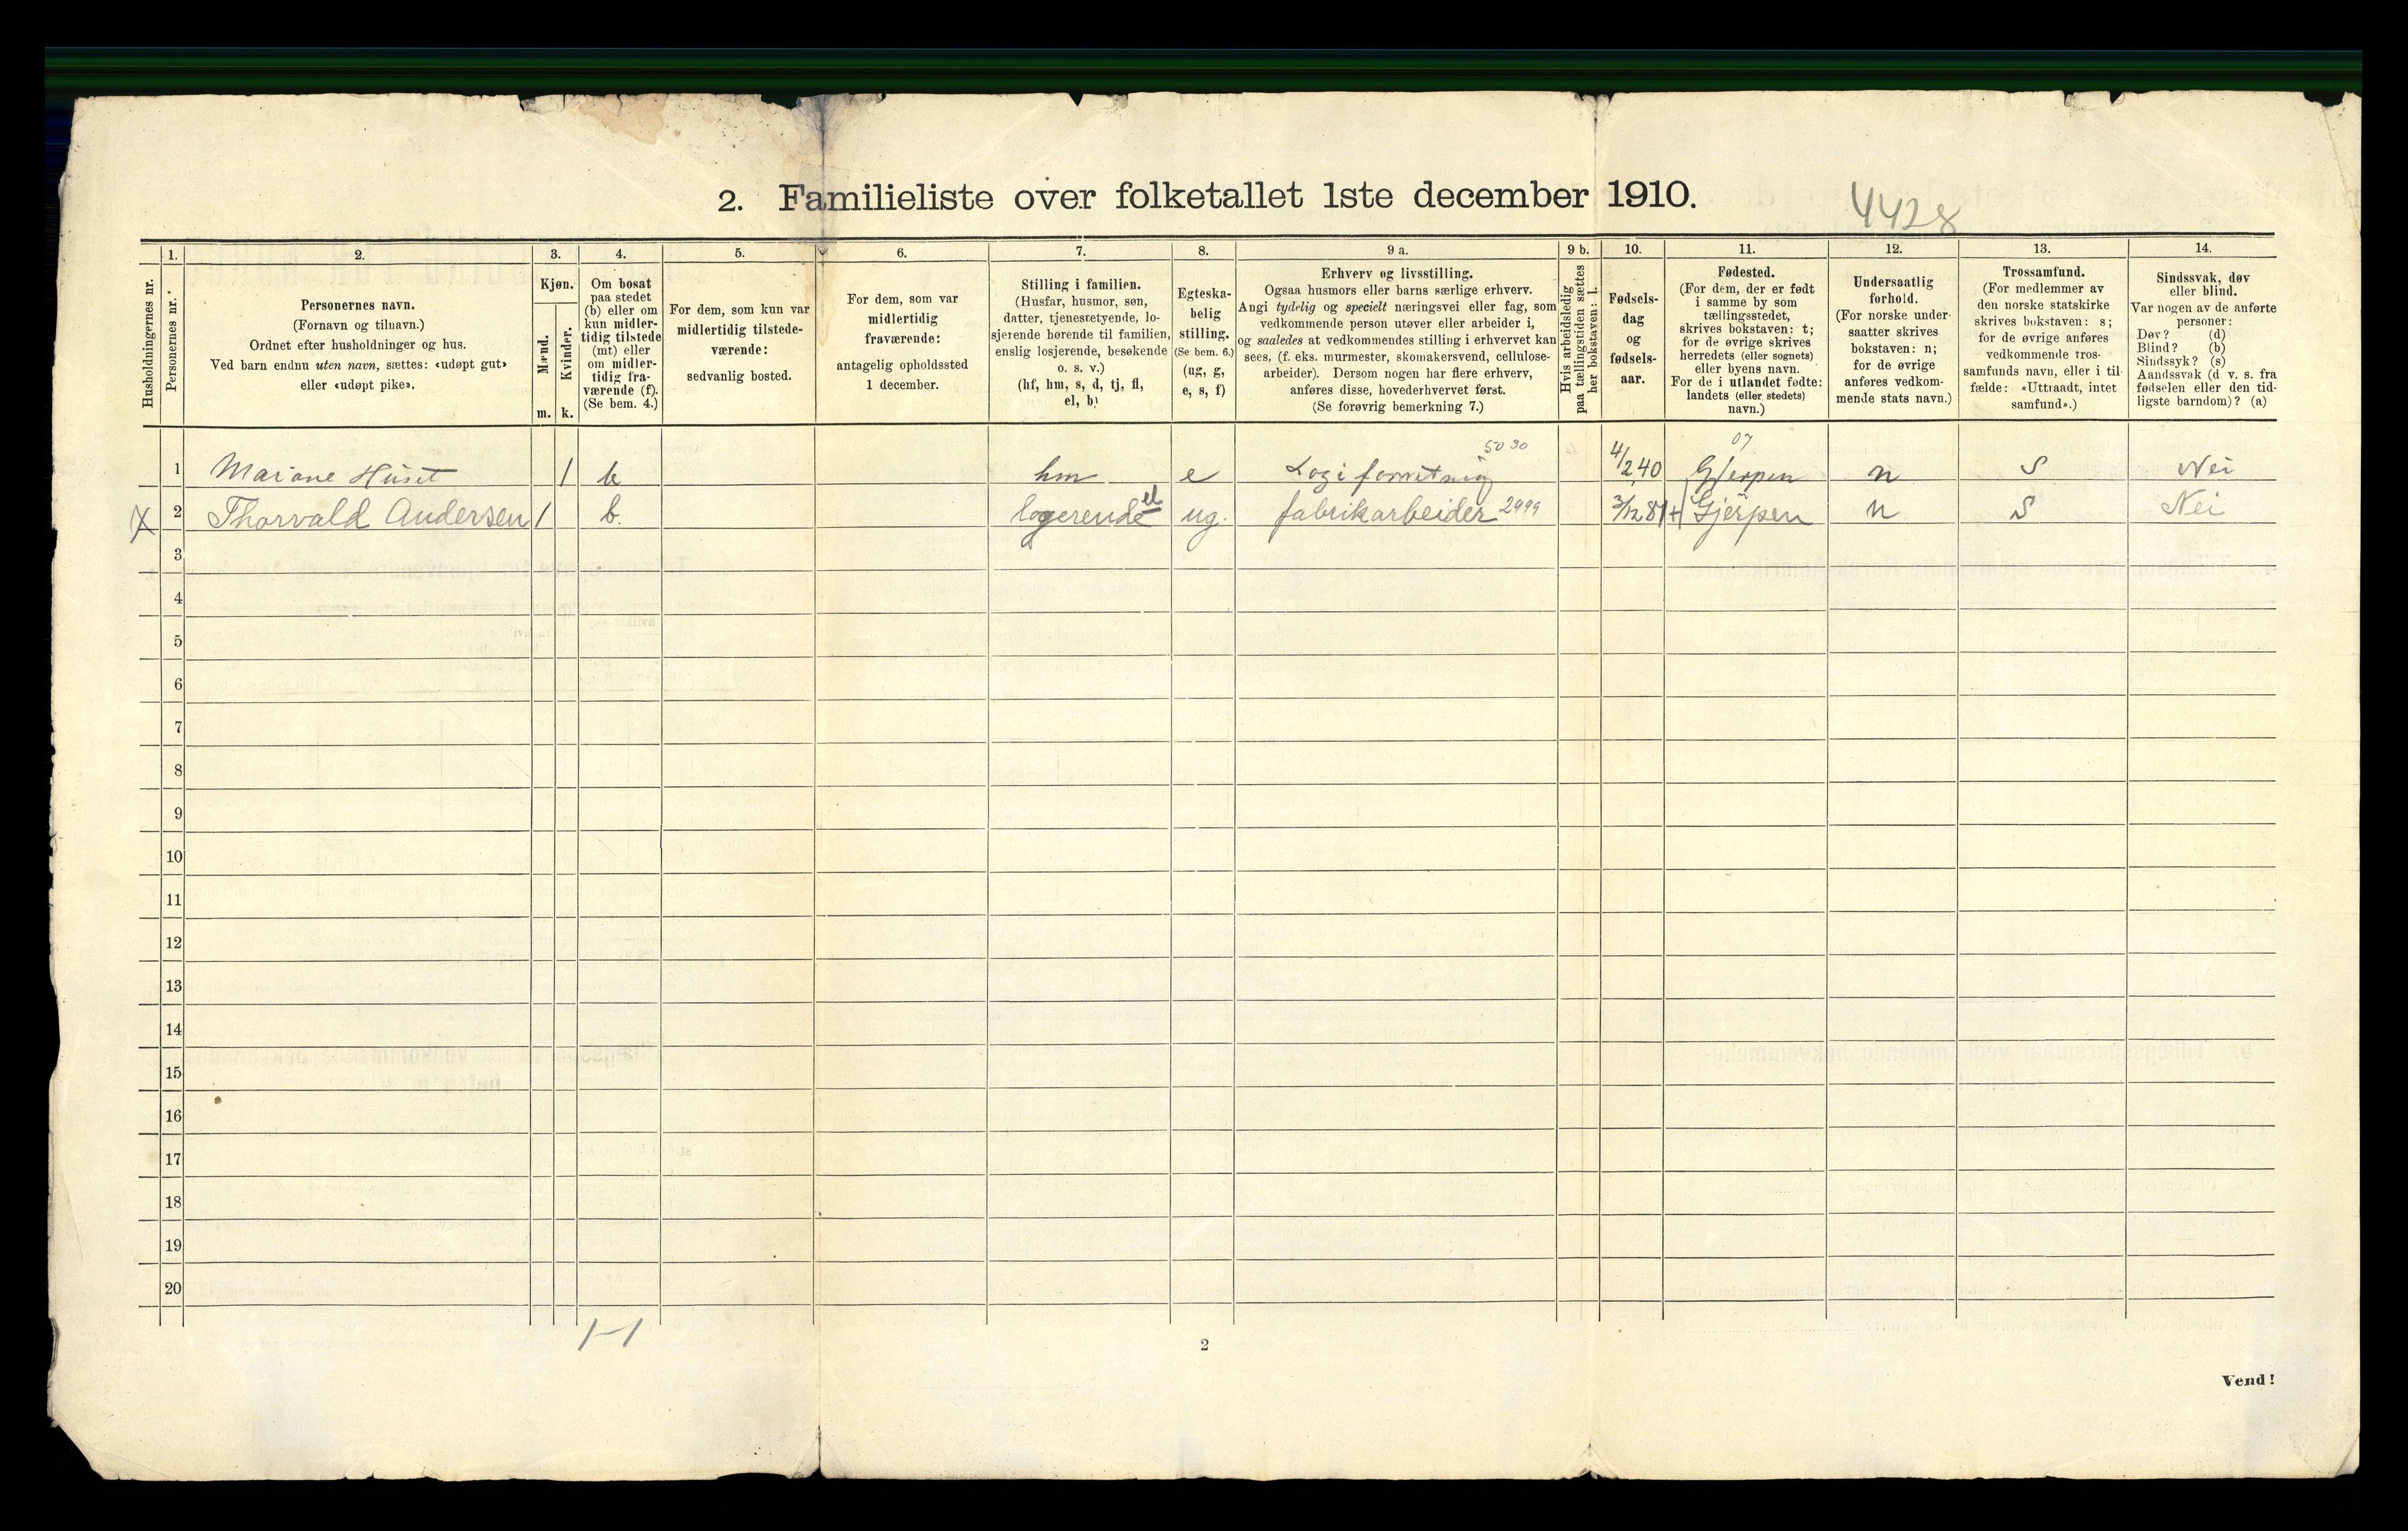 2. Familieliste over folketallet 1ste december 1910.
4428
Husholdningernes nr.
1.
Personernes nr.
2.
Personernes navn.
(Fornavn og tilnavn.)
Ordnet efter husholdninger og hus.
Ved barn endnu uten navn, sættes: «udøpt gut»
eller «udøpt pike».
3.
Kjøn.
Mænd.
Kvinder.
m. k.
4.
Om bosat
paa stedet
(b) eller om
kun midler-
tidig tilstede
(mt) eller
om midler-
tidig fra-
værende (f).
(Se bem. 4.)
5.
For dem, som kun var
midlertidig tilstede-
værende:
sedvanlig bosted.
6.
For dem, som var
midlertidig
fraværende:
antagelig opholdssted
1 december.
7.
Stilling i familien.
(Husfar, husmor, søn,
datter, tjenestetyende, lo-
sjerende hørende til familien,
enslig losjerende, besøkende
o. s. v.)
(hf, hm, s, d, tj, fl,
el, b)
8.
Egteska-
belig
stilling.
(Se bem. 6.)
(ug, g,
e, s, f)
9 a.
Erhverv og livsstilling.
Ogsaa husmors eller barns særlige erhverv.
Angi tydelig og specielt næringsvei eller fag, som
vedkommende person utøver eller arbeider i,
og saaledes at vedkommendes stilling i erhvervet kan
sees, (f. eks. murmester, skomakersvend, cellulose-
arbeider). Dersom nogen har flere erhverv,
anføres disse, hovederhvervet først.
(Se forøvrig bemerkning 7.)
9 b.
Hvis arbeidsledig
paa tællingstiden sættes
her bokstaven: l.
10.
Fødsels-
dag
og
fødsels-
aar.
11.
Fødested.
(For dem, der er født
i samme by som
tællingsstedet,
skrives bokstaven: t;
for de øvrige skrives
herredets (eller sognets)
eller byens navn.
For de i utlandet fødte:
landets (eller stedets)
navn.)
12.
Undersaatlig
forhold.
(For norske under-
saatter skrives
bokstaven: n;
for de øvrige
anføres vedkom-
mende stats navn.)
13.
Trossamfund.
(For medlemmer av
den norske statskirke
skrives bokstaven: s;
for de øvrige anføres
vedkommende tros-
samfunds navn, eller i til-
fælde: «Uttraadt, intet
samfund».)
14.
Sindssvak, døv
eller blind.
Var nogen av de anførte
personer:
Døv? (d)
Blind? (b)
Sindssyk? (s)
Aandssvak (d. v. s. fra
fødselen eller den tid-
ligste barndom)? (a)
5030 07
1 Mariane Huset 1 b hm e Logiforretning 4/2 40 Gjerpen n S Nei
X 2 Thorvald Andersen 1 b. logerende el ug. fabrikarbeider 2999 3/12 81 + Gjerpen n S Nei
3
4
5
6
7
8
9
10
11
12
13
14
15
16
17
18
19
20
1-1
2
Vend!